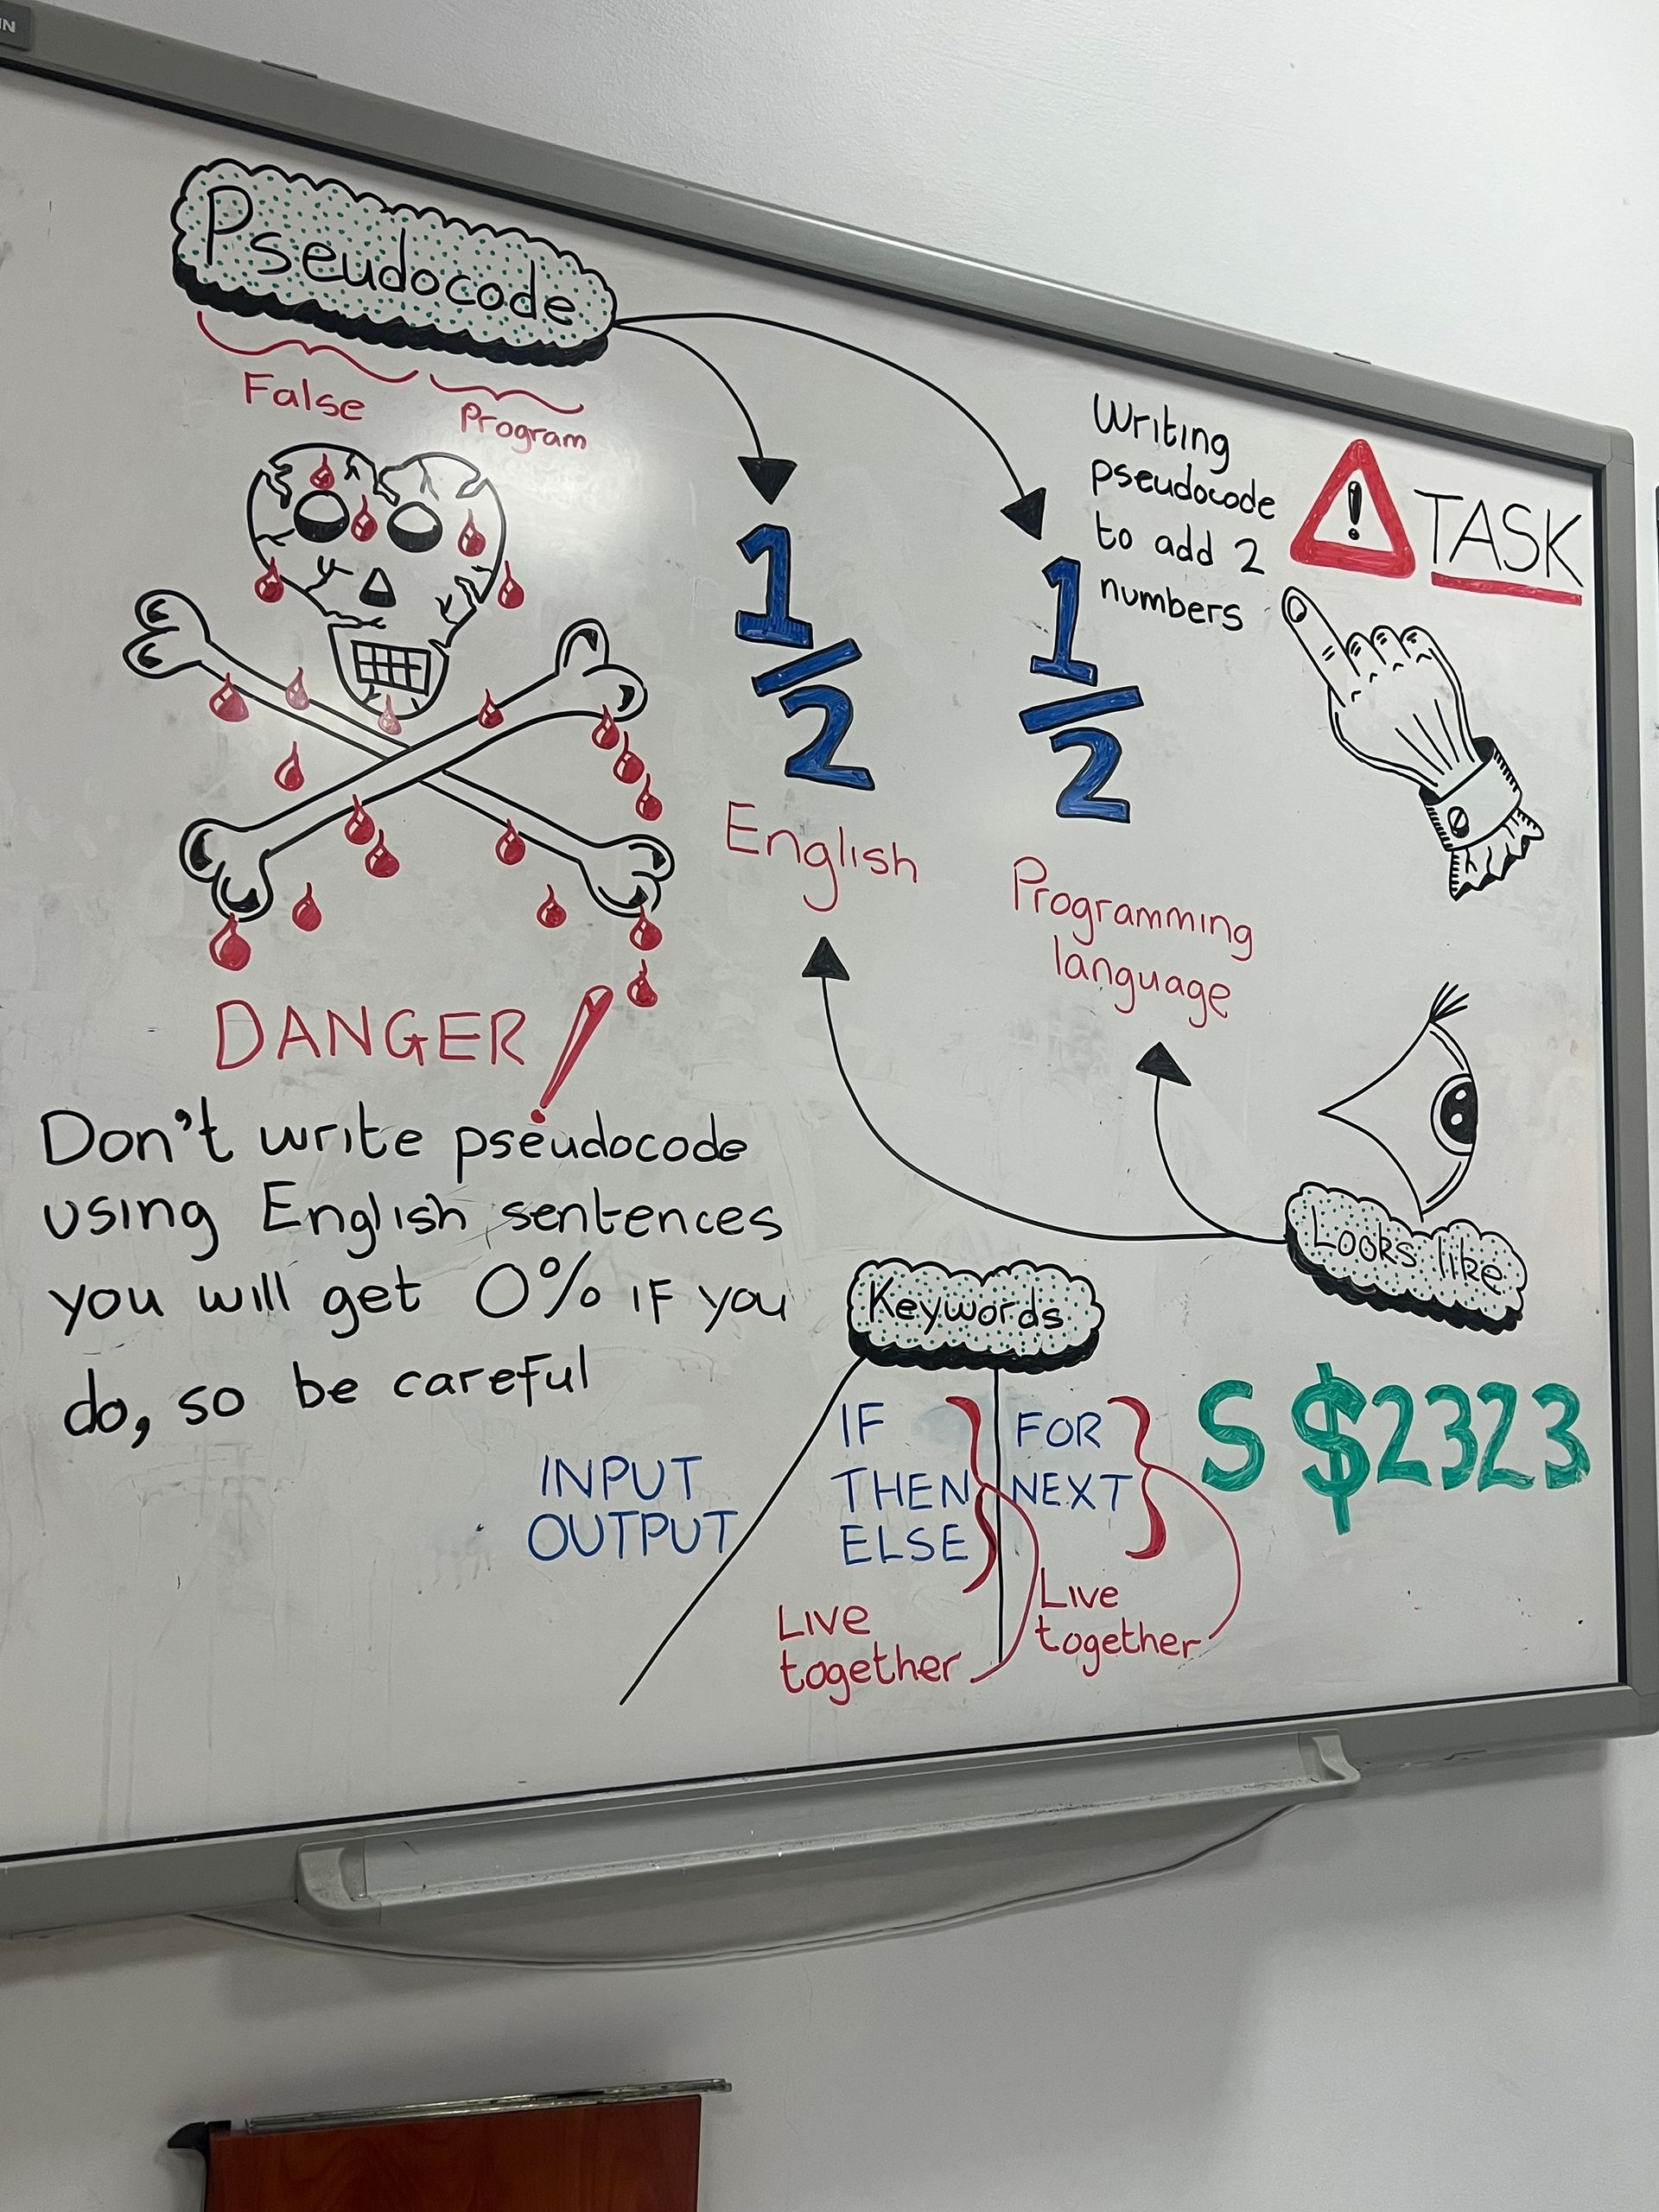 IN
Pseudocode
False
Program
1/2
English
1/2
Programming
language
Writing
pseudocode
to add 2
numbers
! TASK
DANGER!
Don't write pseudocode
using English sentences
you will get 0% if you
do, so be careful
Looks like
Keywords
INPUT
OUTPUT
IF
THEN
ELSE
Live
together
FOR
NEXT
Live
together
S $2323